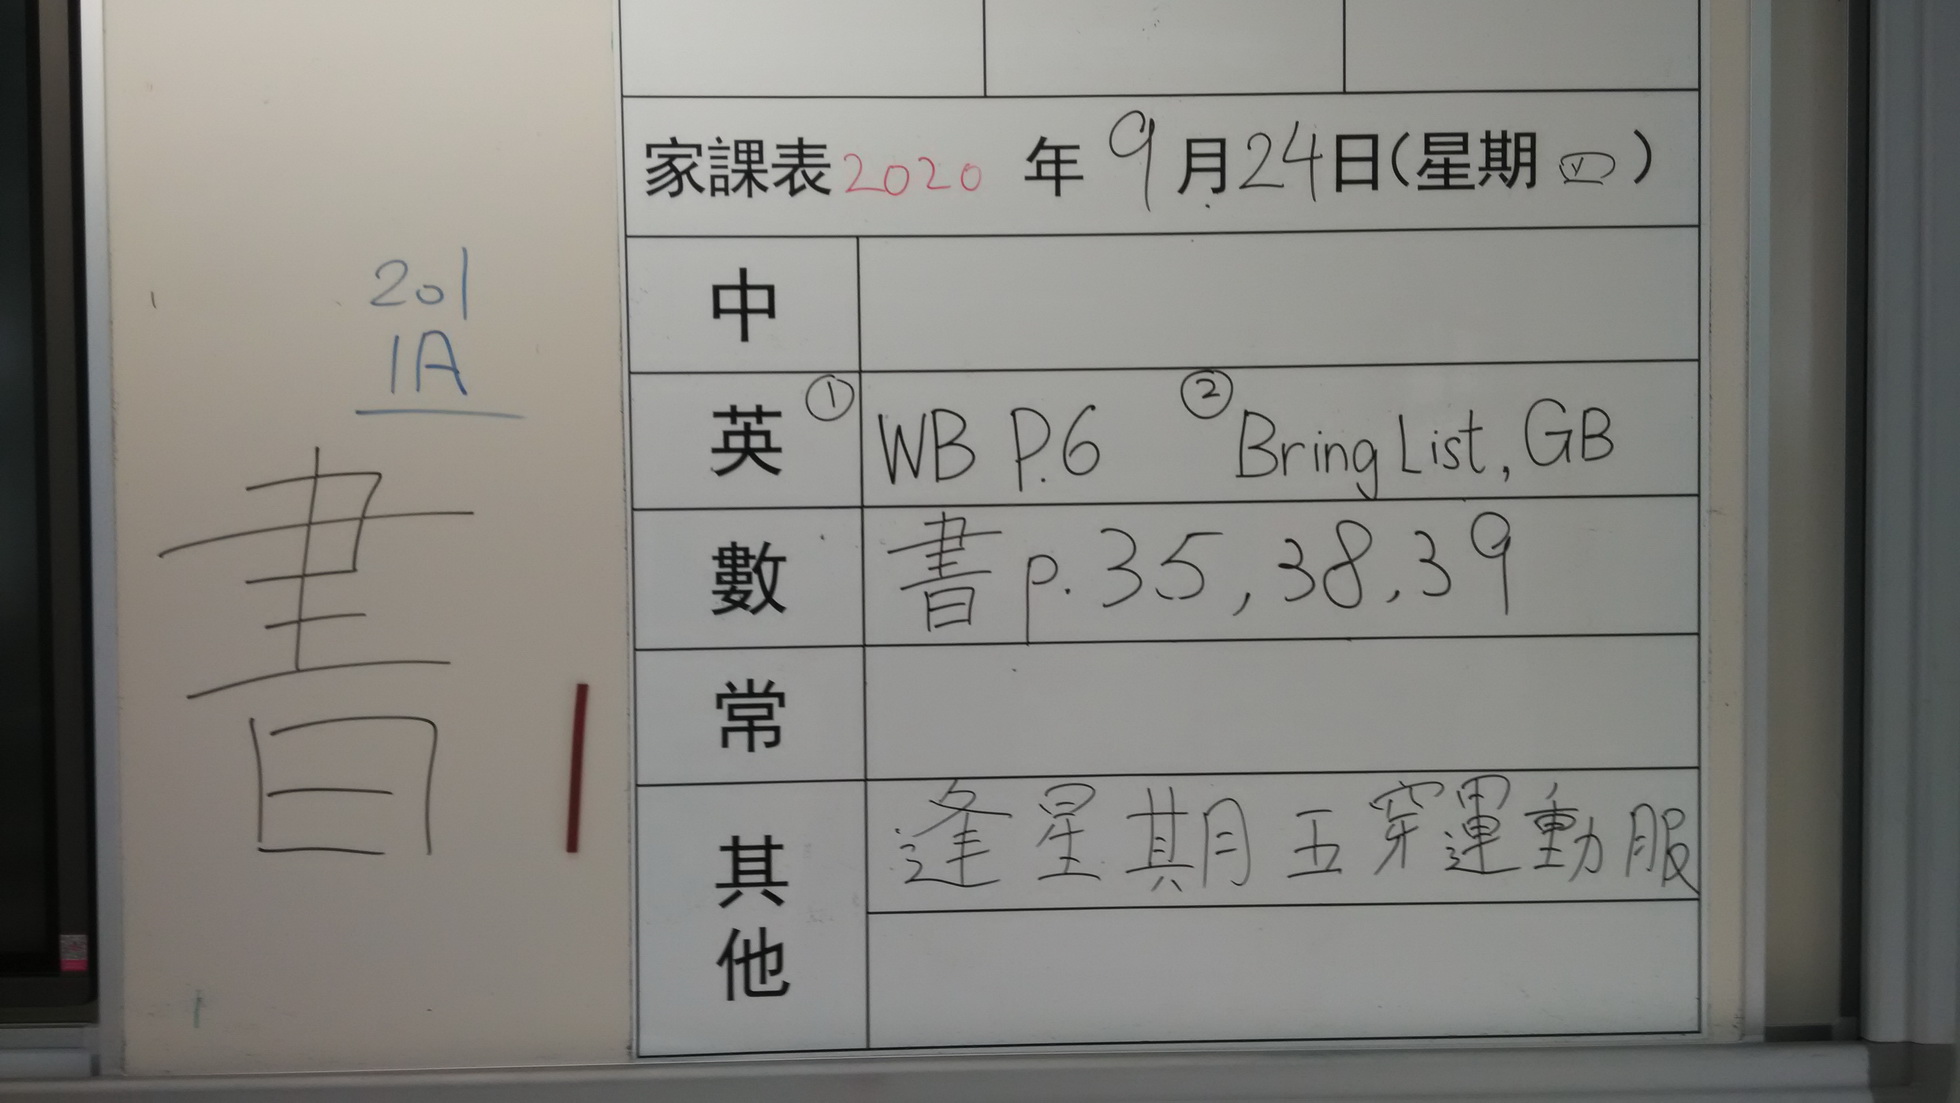 家課表2020年9月24日(星期四)
201
1A
書
中
英 ①WB P.6 ②Bring List, GB
數 書p.35,38,39
常
其他 逢星期五穿運動服